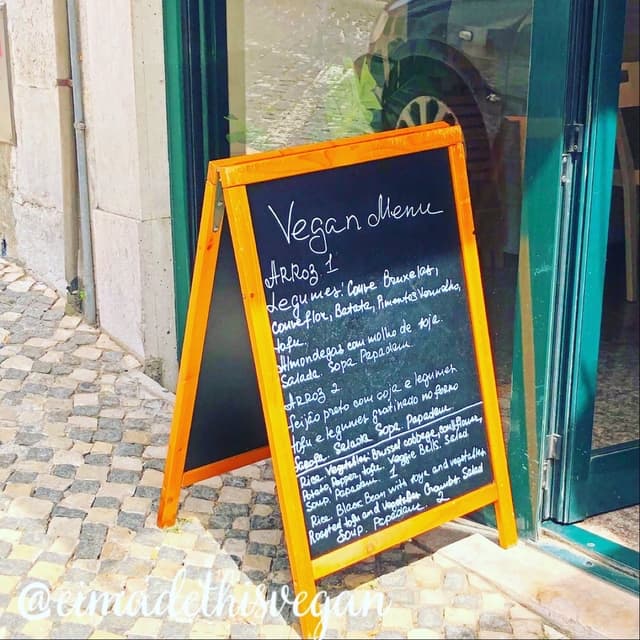 Vegan Menu
ARROZ 1
Legumes: Couve Bruxelas,
Couveflor, Batata, Pimentos Vermelho,
tofu,
Almondegas com molho de soja
Salada Sopa Papadam
ARROZ 2
feijão preto com soja e legumes
tofu e legumes gratinado no forno
Salada Sopa Papadam
Rice Vegetables Brussel cabbage, cauliflower,
Potato, Pepper, tofu. Veggie Balls. Salad
Soup. Papadam 1
Rice Black Bean with soya and vegetables
Roasted tofu and vegetables Salad
SOUP. Papadam. 2
@eimadethisvegan